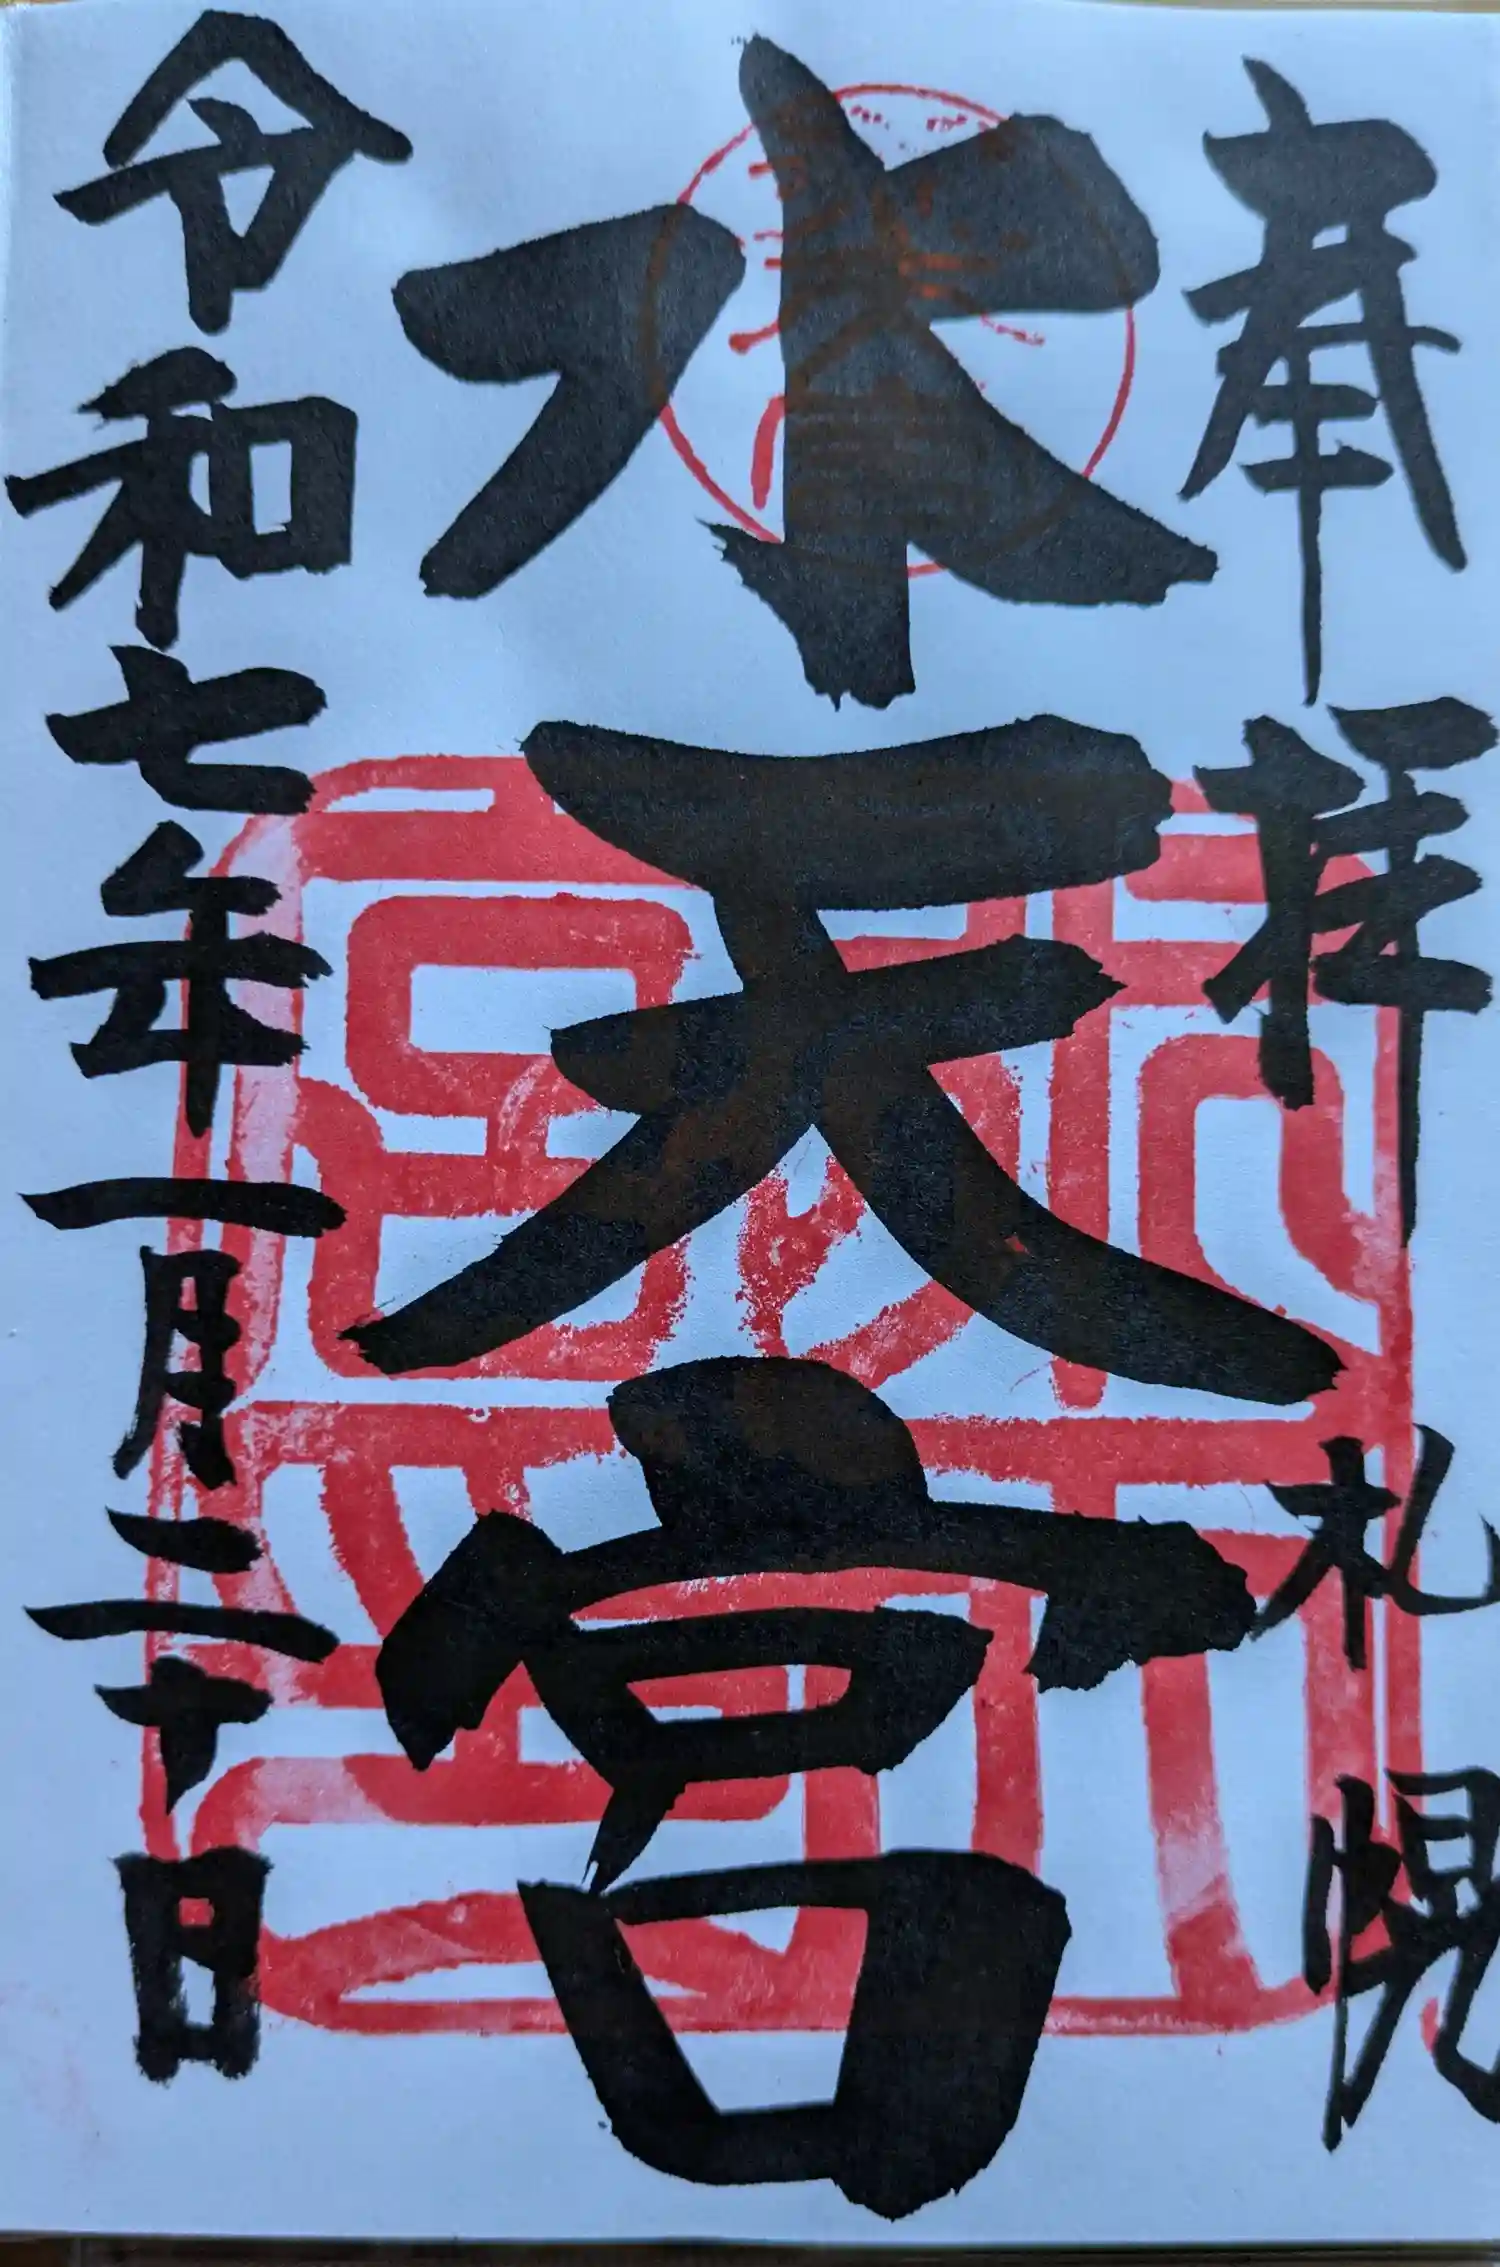 奉拝 札幌
水天宮
令和七年一月二十日